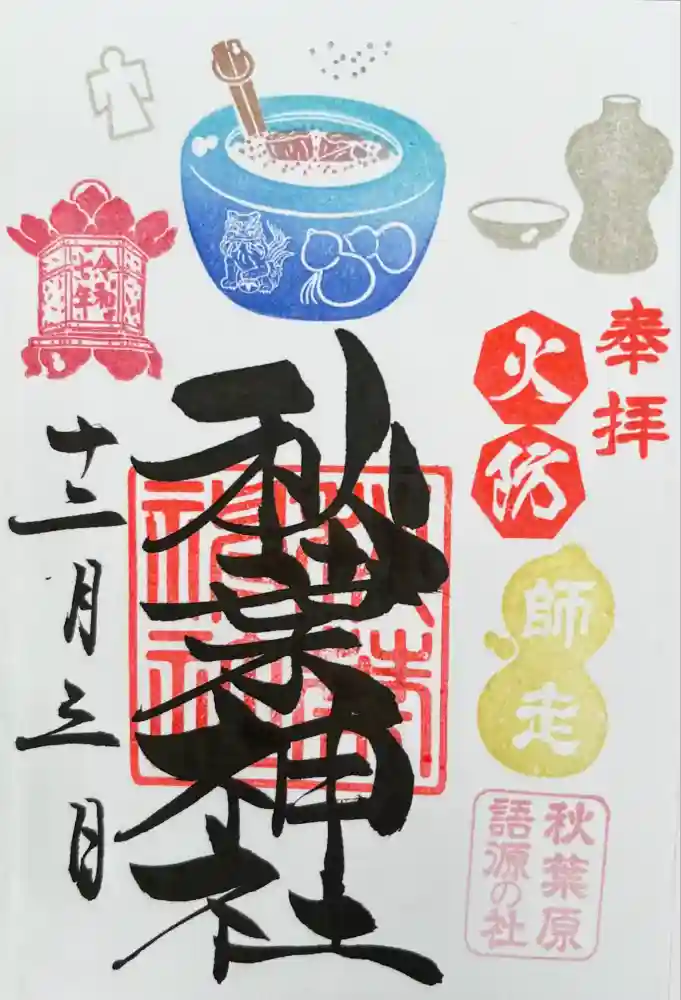 奉拝
火防
師走
秋葉原
語源の社
秋葉神社
令和
七年
十二月三日